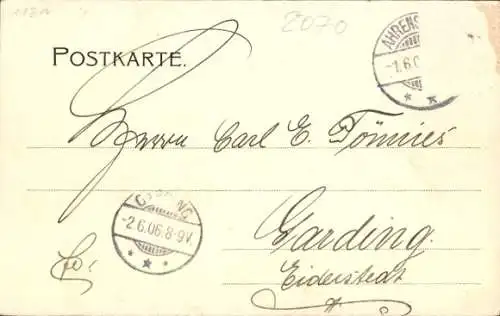 2070
POSTKARTE.
AHRENS
-1.6.0
Herrn Carl E. Tönnies
GARDING
-2.6.06.8-9V.
Garding.
Eiderstedt